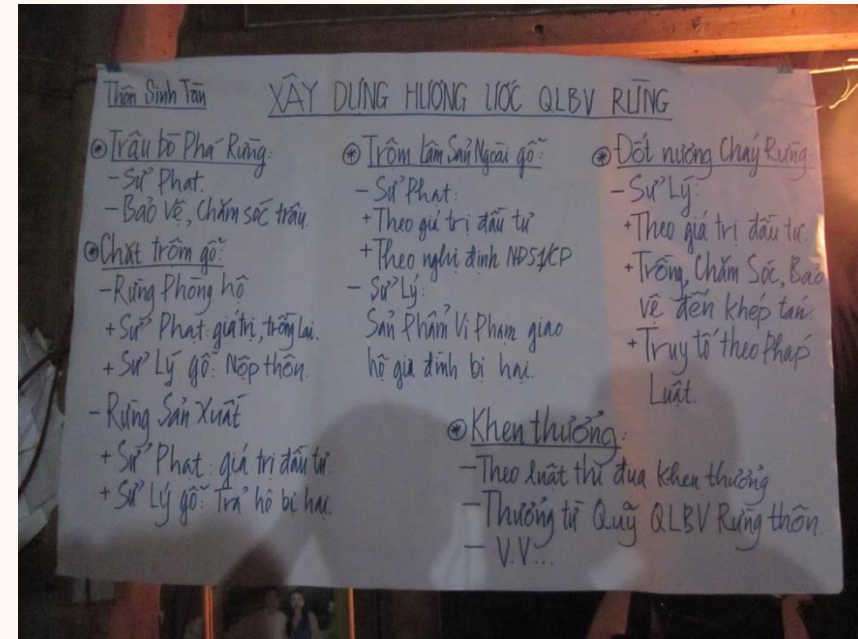 Thôn Sinh Tàn
XÂY DỰNG HƯƠNG ƯỚC QLBV RỪNG
⊛ Trâu bò Phá Rừng:
- Sử Phạt.
- Bảo Vệ, Chăm sóc trâu.
⊛ Chặt trộm gỗ:
- Rừng Phòng hộ
+ Sử Phạt: giá trị, trồng lại.
+ Sử Lý gỗ: Nộp thôn.
- Rừng Sản Xuất
+ Sử Phạt: giá trị đầu tư.
+ Sử Lý gỗ: Trả hộ bị hại.
⊛ Trộm Lâm Sản Ngoài gỗ:
- Sử Phạt:
+ Theo giá trị đầu tư
+ Theo nghị định NĐ51/CP
- Sử Lý:
Sản Phẩm Vi Phạm giao
hộ gia đình bị hại.
⊛ Đốt nương Cháy Rừng:
- Sử Lý:
+ Theo giá trị đầu tư.
+ Trồng, Chăm Sóc, Bảo
vệ đến khép tán.
+ Truy tố theo Pháp
Luật.
⊛ Khen thưởng:
- Theo luật thi đua khen thưởng
- Thưởng từ Quỹ QLBV Rừng thôn.
- V.V...